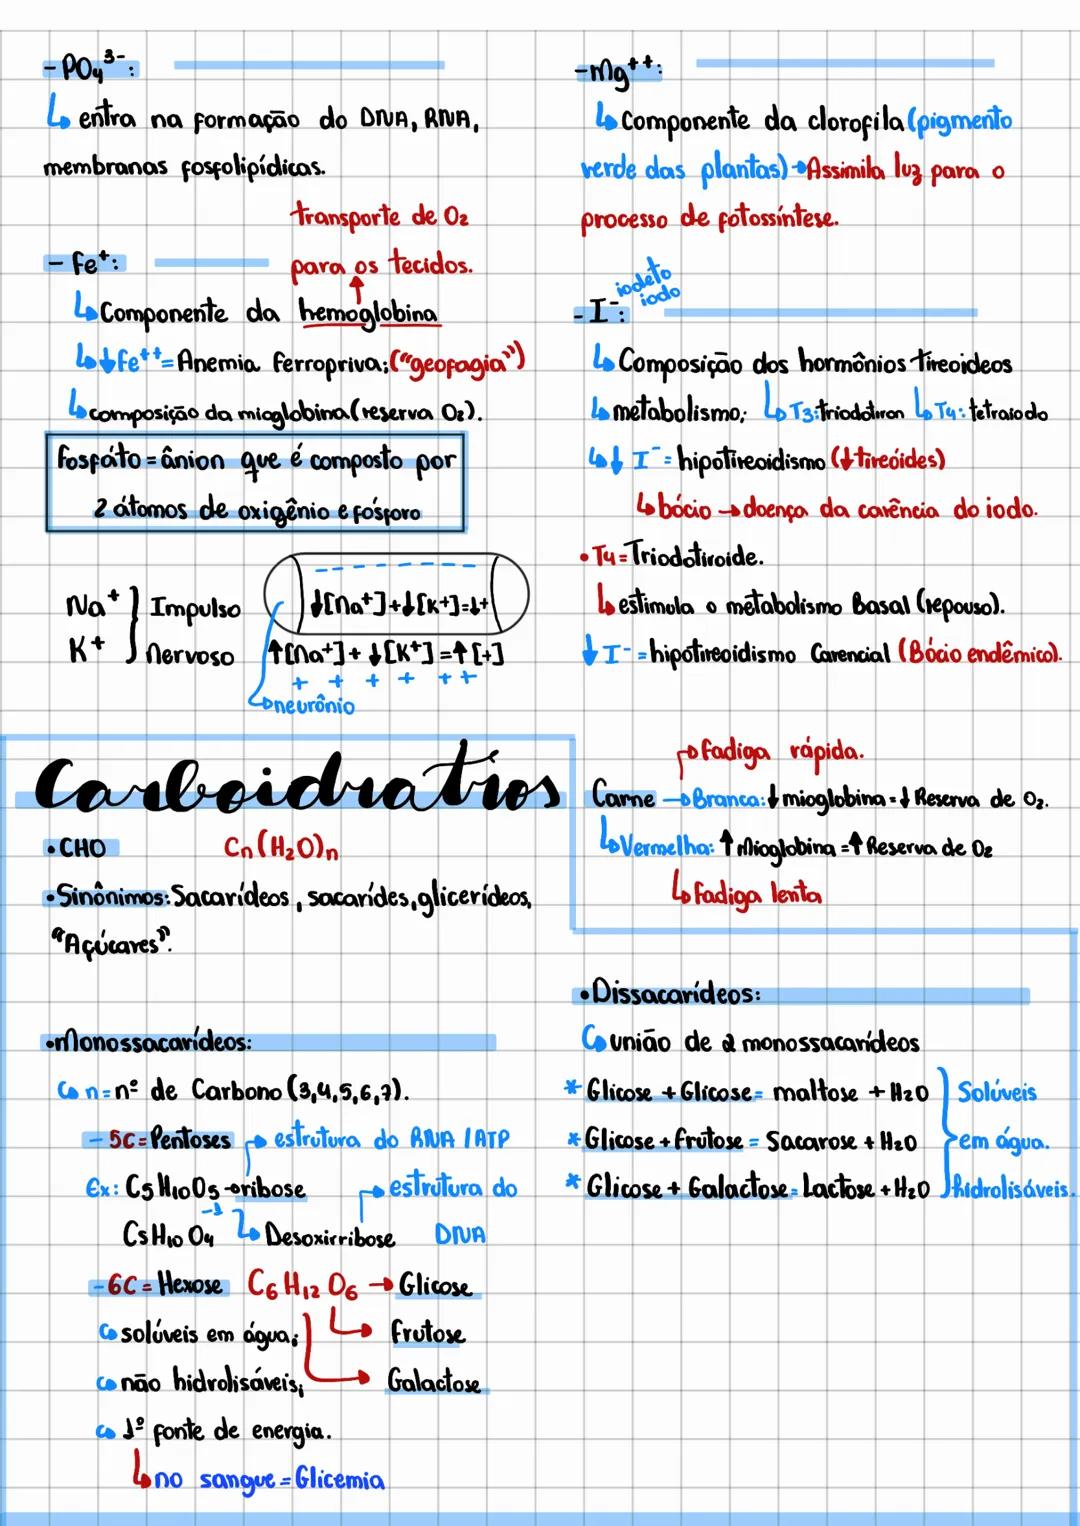 - PO₄³⁻:
↳ entra na formação do DNA, RNA,
membranas fosfolipídicas.
transporte de O₂
para os tecidos.
- Fe⁺:
↳ Componente da hemoglobina
↳ ↓Fe⁺⁺ = Anemia ferropriva; ("geofagia")
↳ composição da mioglobina (reserva O₂).
Fosfáto = ânion que é composto por
2 átomos de oxigênio e fósforo
Na⁺ } Impulso
K⁺ } Nervoso
↓[Na⁺]+↓[K⁺]=↓+
↑[Na⁺]+↓[K⁺]=↑[+]
+ + + + + +
↳ neurônio
- Mg⁺⁺:
↳ Componente da clorofila (pigmento
verde das plantas) → Assimila luz para o
processo de fotossíntese.
iodeto
iodo
- I⁻:
↳ Composição dos hormônios tireoideos
↳ metabolismo; ↳ T₃: triodotiron ↳ T₄: tetraiodo
↳ ↓ I⁻ = hipotireoidismo (↓tireóides)
↳ bócio → doença da carência do iodo.
• T₄ = Triodotiroide.
↳ estimula o metabolismo Basal (repouso).
↓ I⁻ = hipotireoidismo Carencial (Bócio endêmico).
→ fadiga rápida.
Carne → Branca: ↓ mioglobina = ↓ Reserva de O₂.
↳ Vermelha: ↑ Mioglobina = ↑ Reserva de O₂
↳ fadiga lenta
Carboidratros
• CHO Cn(H₂O)n
• Sinônimos: Sacarídeos, sacarídes, glicerídeos,
"Açúcares".
• Monossacarídeos:
↳ n = nº de Carbono (3,4,5,6,7).
- 5C = Pentoses → estrutura do RNA / ATP
Ex: C₅H₁₀O₅ → ribose → estrutura do
C₅H₁₀O₄ ⁻¹ ↳ Desoxirribose DNA
- 6C = Hexose C₆H₁₂O₆ → Glicose
↳ solúveis em água; → frutose
↳ não hidrolisáveis; → Galactose
↳ 1º fonte de energia.
↳ no sangue = Glicemia
• Dissacarídeos:
↳ união de 2 monossacarídeos
* Glicose + Glicose = maltose + H₂O } Solúveis
* Glicose + frutose = Sacarose + H₂O } em água.
* Glicose + Galactose = Lactose + H₂O } hidrolisáveis.